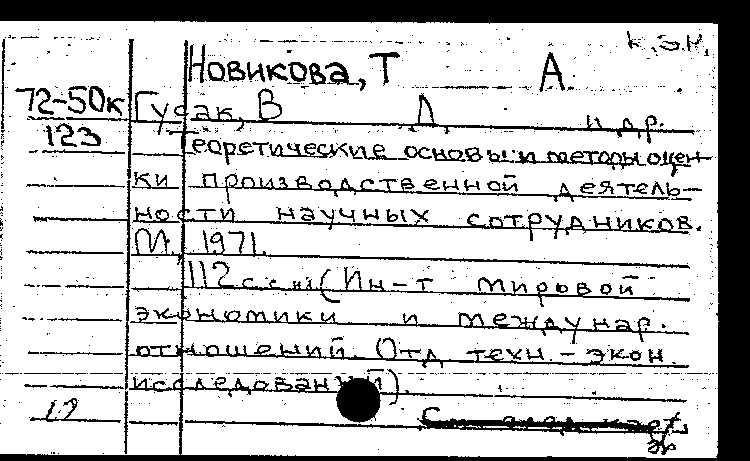 К.Э.М.
Новикова, Т А
72-50к Гусак, В Л и др.
123 Теоретические основы и методы оцен-
ки производственной деятель-
ности научных сотрудников.
М., 1971.
112 с. (Ин-т мировой
экономики и междунар.
отношений. Отд техн.-экон.
исследований).